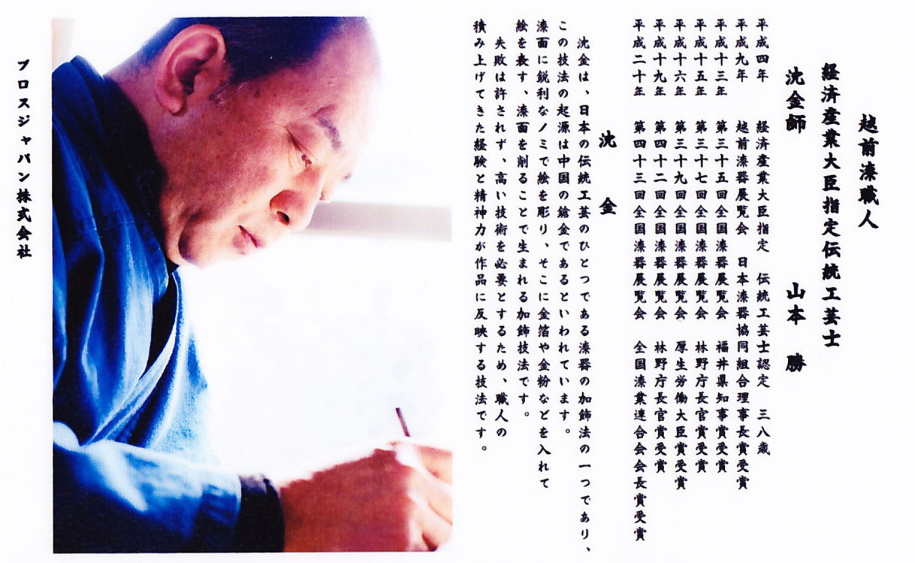 越前漆職人
経済産業大臣指定伝統工芸士
沈金師　山本　勝
平成四年　経済産業大臣指定　伝統工芸士認定　三八歳
平成九年　越前漆器展覧会　日本漆器協同組合理事長賞受賞
平成十三年　第三十五回全国漆器展覧会　福井県知事賞受賞
平成十五年　第三十七回全国漆器展覧会　林野庁長官賞受賞
平成十六年　第三十九回全国漆器展覧会　厚生労働大臣賞受賞
平成十九年　第四十二回全国漆器展覧会　林野庁長官賞受賞
平成二十年　第四十三回全国漆器展覧会　全国漆業連合会会長賞受賞
沈　金
沈金は、日本の伝統工芸のひとつである漆器の加飾法の一つであり、
この技法の起源は中国の鎗金であるといわれています。
漆面に鋭利なノミで絵を彫り、そこに金箔や金粉などを入れて
絵を表す、漆面を削ることで生まれる加飾技法です。
失敗は許されず、高い技術を必要とするため、職人の
積み上げてきた経験と精神力が作品に反映する技法です。
プロスジャパン株式会社